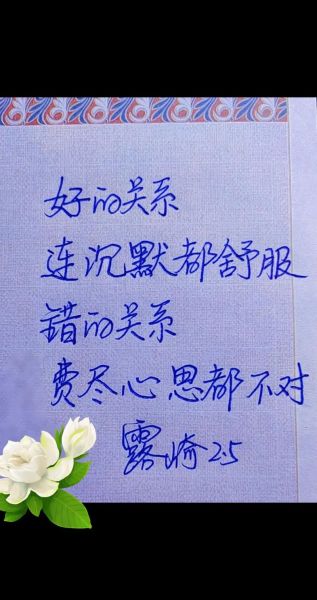 好的关系
连沉默都舒服
错的关系
费尽心思都不对
露崎2.5